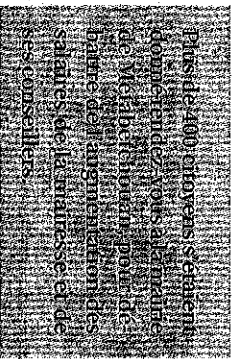 Plus de 400 citoyens s'étaient
donné rendez-vous à la mairie
de Métabetchouan pour dé-
battre de l'augmentation des
salaires de la mairesse et de
ses conseillers.